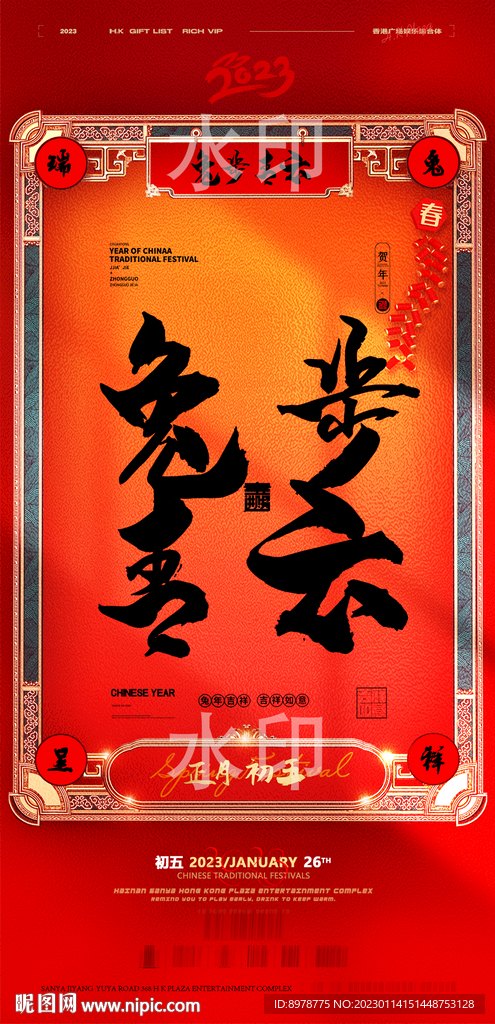 2023 H.K GIFT LIST RICH VIP 香港广场娱乐综合体
2023
水印
瑞 兔步青云 兔
春
YEAR OF CHINAA
TRADITIONAL FESTIVAL
JJIA' JIE
ZHONGGUO
贺年
兔步
青云
CHINESE YEAR 兔年吉祥 吉祥如意
水印
呈 Spring Festival 祥
正月初五
初五 2023/JANUARY 26TH
CHINESE TRADITIONAL FESTIVALS
HAINAN SANYA HONG KONG PLAZA ENTERTAINMENT COMPLEX
REMIND YOU TO PLAY EARLY, DRINK TO KEEP WARM.
SANYA JIYANG YUYA ROAD 368 H K PLAZA ENTERTAINMENT COMPLEX
昵图网 www.nipic.com ID:8978775 NO:20230114151448753128